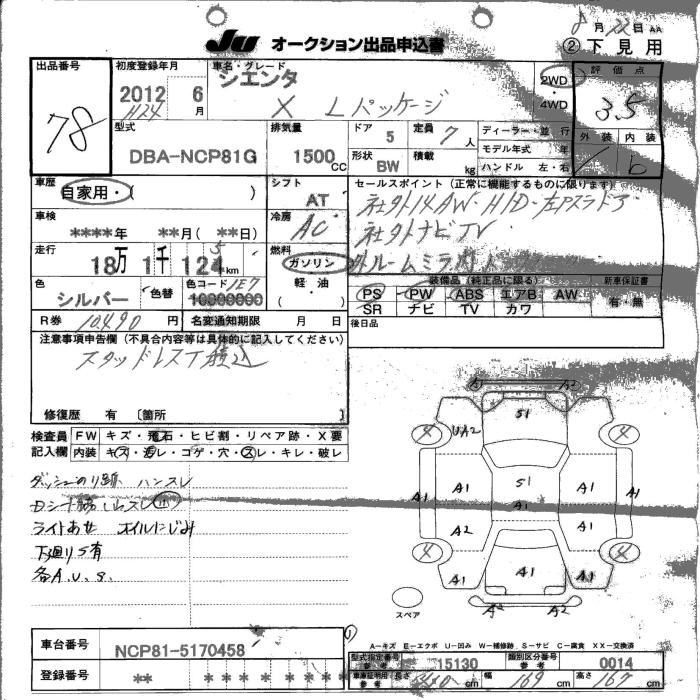 8月22日 AA
JU オークション出品申込書
② 下見用
出品番号
78
初度登録年月
2012年 6月
H24
車名・グレード
シエンタ
X Lパッケージ
2WD
4WD
評価点
3.5
外装 内装
b
型式
DBA-NCP81G
排気量
1500cc
ドア 5
定員 7人
形状 BW
積載 kg
ディーラー・並行
モデル年式 年
ハンドル 左・右
車歴
自家用・( )
シフト
AT
セールスポイント(正常に機能するものに限ります)
社外14AW・H/D・左Pスラドア
社外ナビTV
車検
****年 **月(**日)
冷房
AC
走行
18万1千124km
5
燃料
ガソリン
軽・油
( )
色
シルバー
色替
色コード 1E7
10000000
装備品(純正品に限る)
新車保証書
PS PW ABS エアB AW
SR ナビ TV カワ
有・無
R券 10,490円
名変通知期限 月 日
後日品
注意事項申告欄(不具合内容等は具体的に記入してください)
スタッドレス
修復歴 有 〔箇所 〕
検査員記入欄
FW キズ・飛石・ヒビ割・リペア跡・X要
内装 キズ・汚レ・コゲ・穴・スレ・キレ・破レ
ダッシュのり跡 ハンスレ
ライトあせ オイルにじみ
下廻りS有
各A.U.S.
A2
S1
UA2
A1 A1 S1 A1 A1
A1
A2 A1
A1 A1 A1
A2 A2
スペア
A−キズ E−エクボ U−凹み W−補修跡 S−サビ C−腐食 XX−交換済
車台番号
NCP81-5170458
登録番号
** * * * * * * *
型式指定番号 参考 15130
類別区分番号 参考 0014
車庫証明用 参考
長さ cm
幅 169 cm
高さ 167 cm